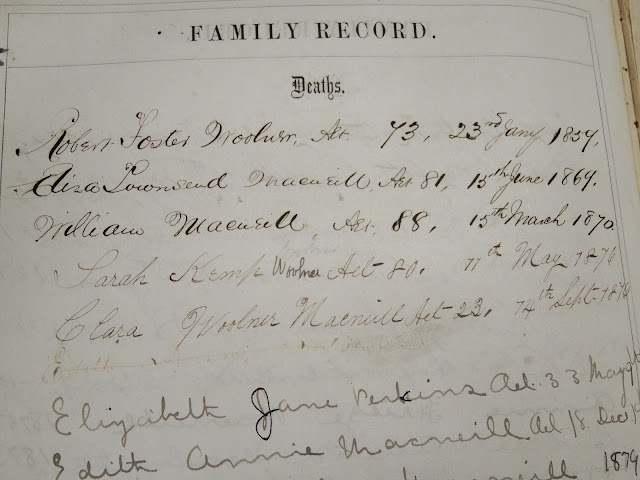 FAMILY RECORD.
Deaths.
Robert Foster Woolner, Aet 73, 23rd Jany 1859,
Eliza Townsend Macneill, Aet 81, 15th June 1869.
William Macneill, Aet. 88, 15th March 1870
Sarah Kemp Woolner Aet 80. 11th May 1876
Clara Woolner Macneill Aet 23, 14th Sept. 1876
Edith
Elizabeth Jane Perkins Aet. 33 May
Edith Annie Macneill Aet 18. Dec
1879